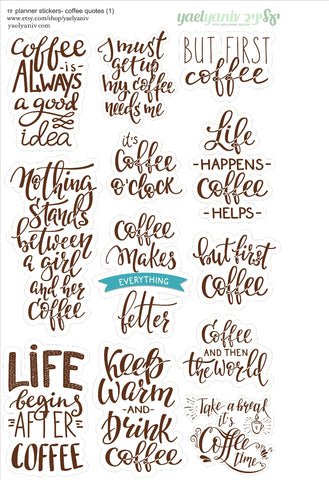 12 planner stickers- coffee quotes (1)
www.etsy.com/shop/yaelyaniv
yaelyaniv.com
yaelyaniv
coffee
-is-
ALWAYS
a good
idea
I must
get up
my coffee
needs me
BUT FIRST
coffee
it's
Coffee
o'clock
Life
-HAPPENS-
Coffee
-HELPS-
Nothing
Stands
between
a girl
and her
Coffee
Coffee
Makes
EVERYTHING
better
but first
Coffee
LIFE
begins
-AFTER-
COFFEE
Keep
Warm
-AND-
Drink
Coffee
Coffee
AND THEN
the World
Take a break
it's
Coffee
time